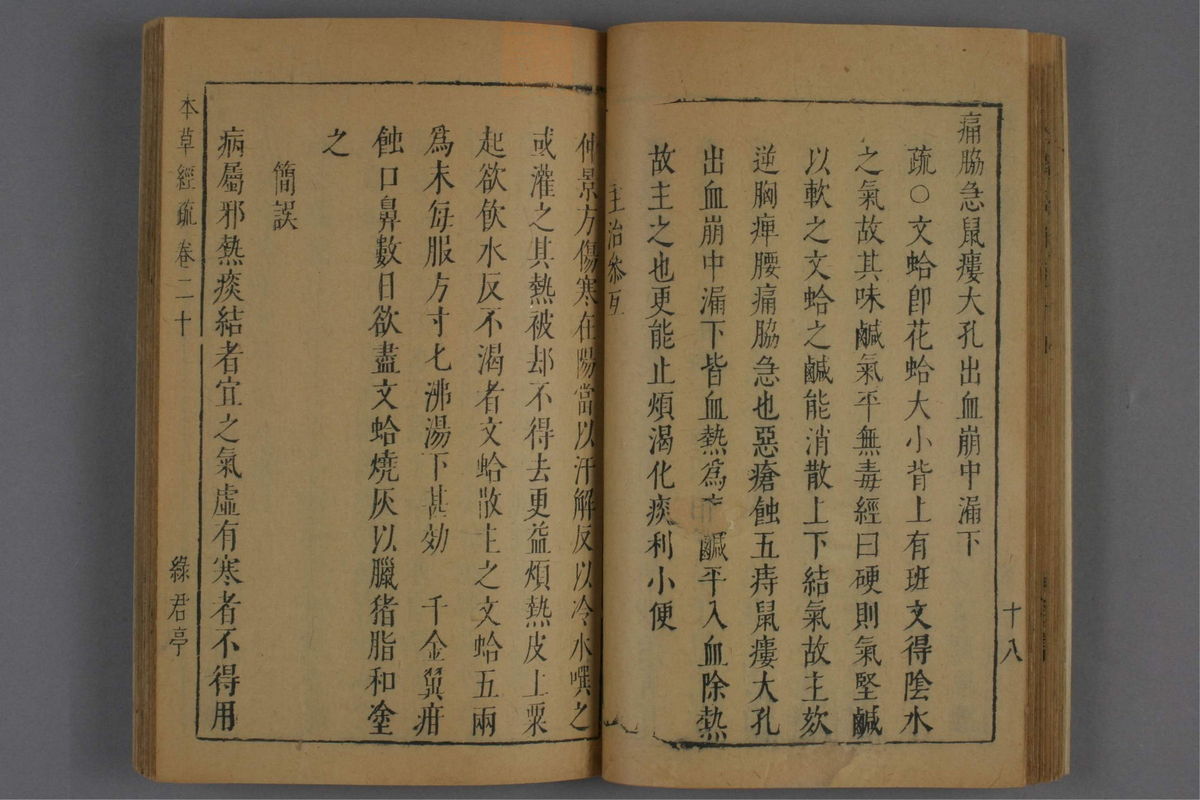 痛脇急鼠瘻大孔出血崩中漏下
疏○文蛤卽花蛤大小背上有班文得陰水
之氣故其味鹹氣平無毒經曰硬則氣堅鹹
以軟之文蛤之鹹能消散上下結氣故主欬
逆胸痺腰痛脇急也惡瘡蝕五痔鼠瘻大孔
出血崩中漏下皆血熱爲 鹹平入血除熱
故主之也更能止煩渴化痰利小便
十八
主治參互
仲景方傷寒在陽當以汗解反以冷水噀之
或灌之其熱被却不得去更益煩熱皮上粟
起欲飮水反不渴者文蛤散主之文蛤五兩
爲末每服方寸匕沸湯下甚効 千金翼疳
蝕口鼻數日欲盡文蛤燒灰以臘猪脂和塗
之
簡誤
病屬邪熱痰結者宜之氣虛有寒者不得用
本草經疏 卷二十
綠君亭